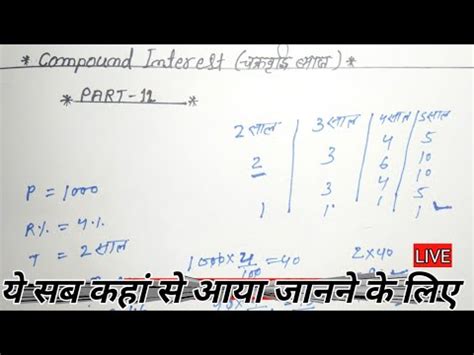 * Compound Interest (चक्रवृद्धि ब्याज) *
* PART-12 *
2 साल | 3 साल | 4 साल | 5 साल
2 3 4 5
6 10
3 4 10
1 1 1 5
1
P = 1000
R% = 4%
T = 2 साल
1000 × 4/100 = 40
2 × 40
LIVE
ये सब कहां से आया जानने के लिए